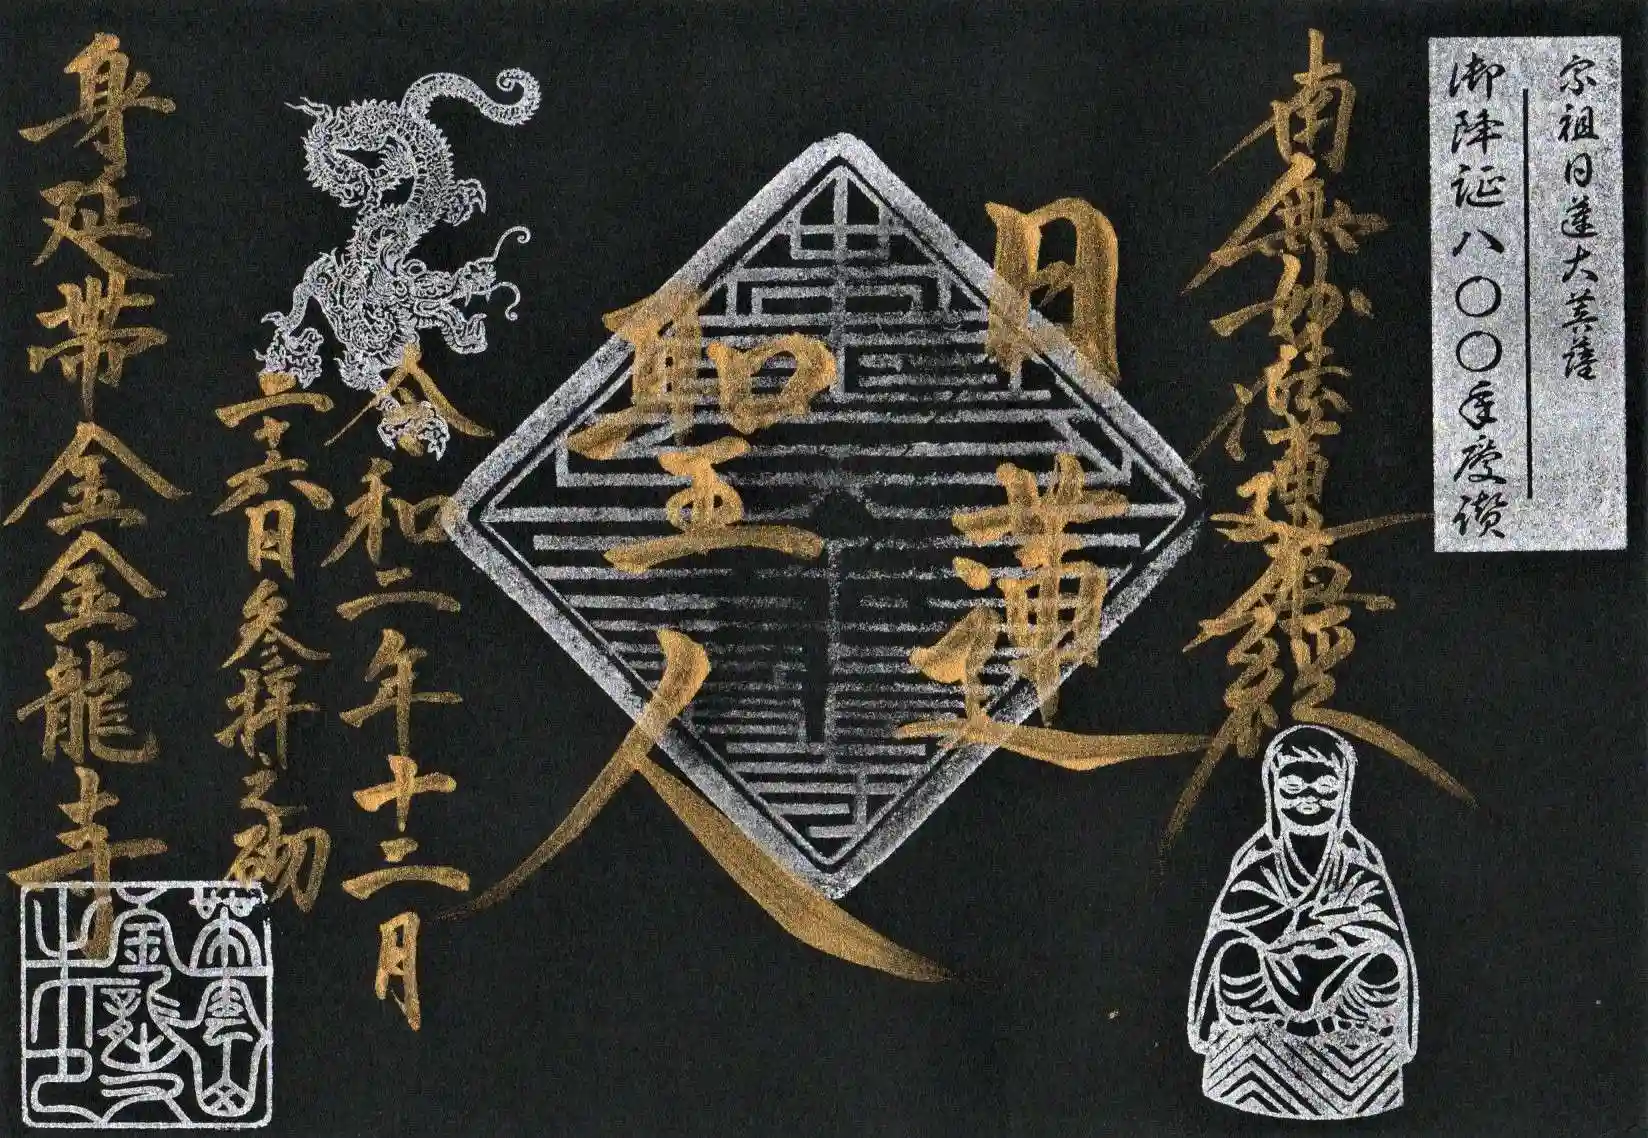 宗祖日蓮大菩薩
御降誕八〇〇年慶讃
南無妙法蓮華經
日蓮
聖人
令和二年十二月
二十六日参拝之砌
身延帯金金龍寺
金龍寺